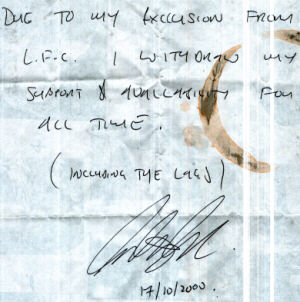 DUE TO MY EXCLUSION FROM
L.F.C. I WITDRAW MY
SUPPORT & AVAILABILITY FOR
ALL TIME.
(INCLUDING THE LAGS)
17/10/2000.